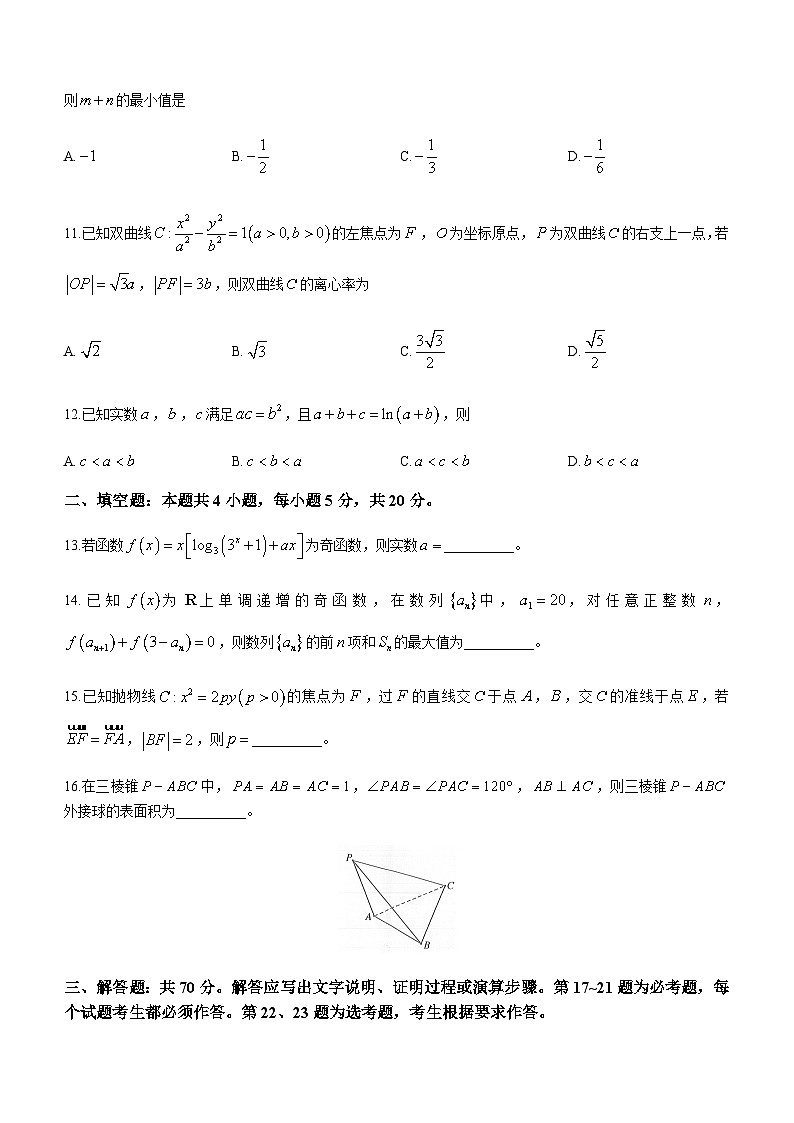 则m+n的最小值是
A.−1 B.−1/2 C.−1/3 D.−1/6
11.已知双曲线C:x²/a²−y²/b²=1(a>0,b>0)的左焦点为F，O为坐标原点，P为双曲线C的右支上一点,若
|OP|=√3a，|PF|=3b，则双曲线C的离心率为
A.√2 B.√3 C.3√3/2 D.√5/2
12.已知实数a，b，c满足ac=b²，且a+b+c=ln(a+b)，则
A.c<a<b B.c<b<a C.a<c<b D.b<c<a
二、填空题：本题共4小题，每小题5分，共20分。
13.若函数f(x)=x[log₃(3ˣ+1)+ax]为奇函数，则实数a=__________。
14.已知f(x)为R上单调递增的奇函数，在数列{aₙ}中，a₁=20，对任意正整数n，
f(aₙ₊₁)+f(3−aₙ)=0，则数列{aₙ}的前n项和Sₙ的最大值为__________。
15.已知抛物线C:x²=2py(p>0)的焦点为F，过F的直线交C于点A，B，交C的准线于点E，若
EF=FA，|BF|=2，则p=__________。
16.在三棱锥P−ABC中，PA=AB=AC=1，∠PAB=∠PAC=120°，AB⊥AC，则三棱锥P−ABC
外接球的表面积为__________。
P
C
A
B
三、解答题：共70分。解答应写出文字说明、证明过程或演算步骤。第17~21题为必考题，每
个试题考生都必须作答。第22、23题为选考题，考生根据要求作答。